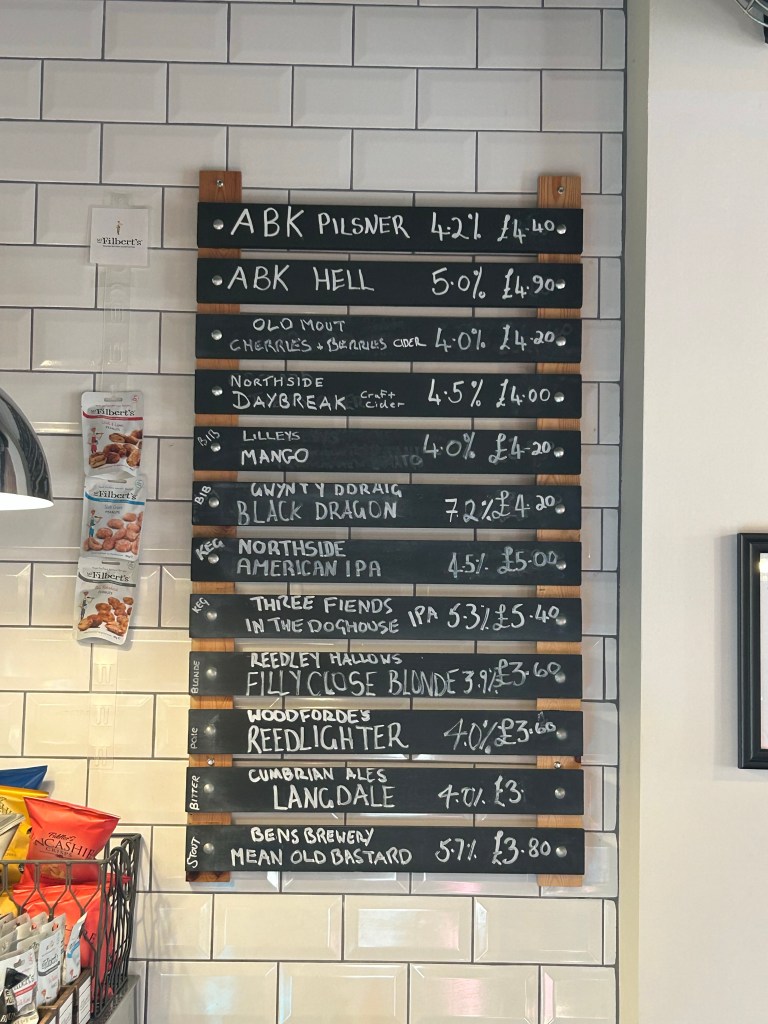 ABK PILSNER 4.2% £4.40
ABK HELL 5.0% £4.90
OLD MOUT
CHERRIES + BERRIES CIDER 4.0% £4.20
NORTHSIDE
DAYBREAK Craft Cider 4.5% £4.00
BIB LILLEYS
MANGO 4.0% £4.20
BIB GWYNT Y DDRAIG
BLACK DRAGON 7.2% £4.20
KEG NORTHSIDE
AMERICAN IPA 4.5% £5.00
KEG THREE FIENDS
IN THE DOGHOUSE IPA 5.3% £5.40
BLONDE REEDLEY HALLOWS
FILLY CLOSE BLONDE 3.9% £3.60
PALE WOODFORDE'S
REEDLIGHTER 4.0% £3.60
BITTER CUMBRIAN ALES
LANGDALE 4.0% £3.
STOUT BENS BREWERY
MEAN OLD BASTARD 5.7% £3.80
Filbert's
Filbert's
Filbert's
Filbert's